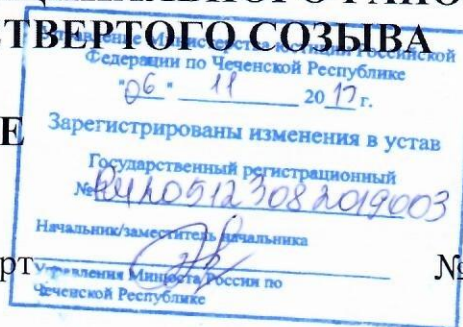 ТВЕРТОГО СОЗЫВА
Управление Министерства юстиции Российской
Федерации по Чеченской Республике
"06" 11 2019 г.
Е
Зарегистрированы изменения в устав
Государственный регистрационный
№ RU205123082019003
Начальник/заместитель начальника
рт №
Управления Минюста России по
Чеченской Республике